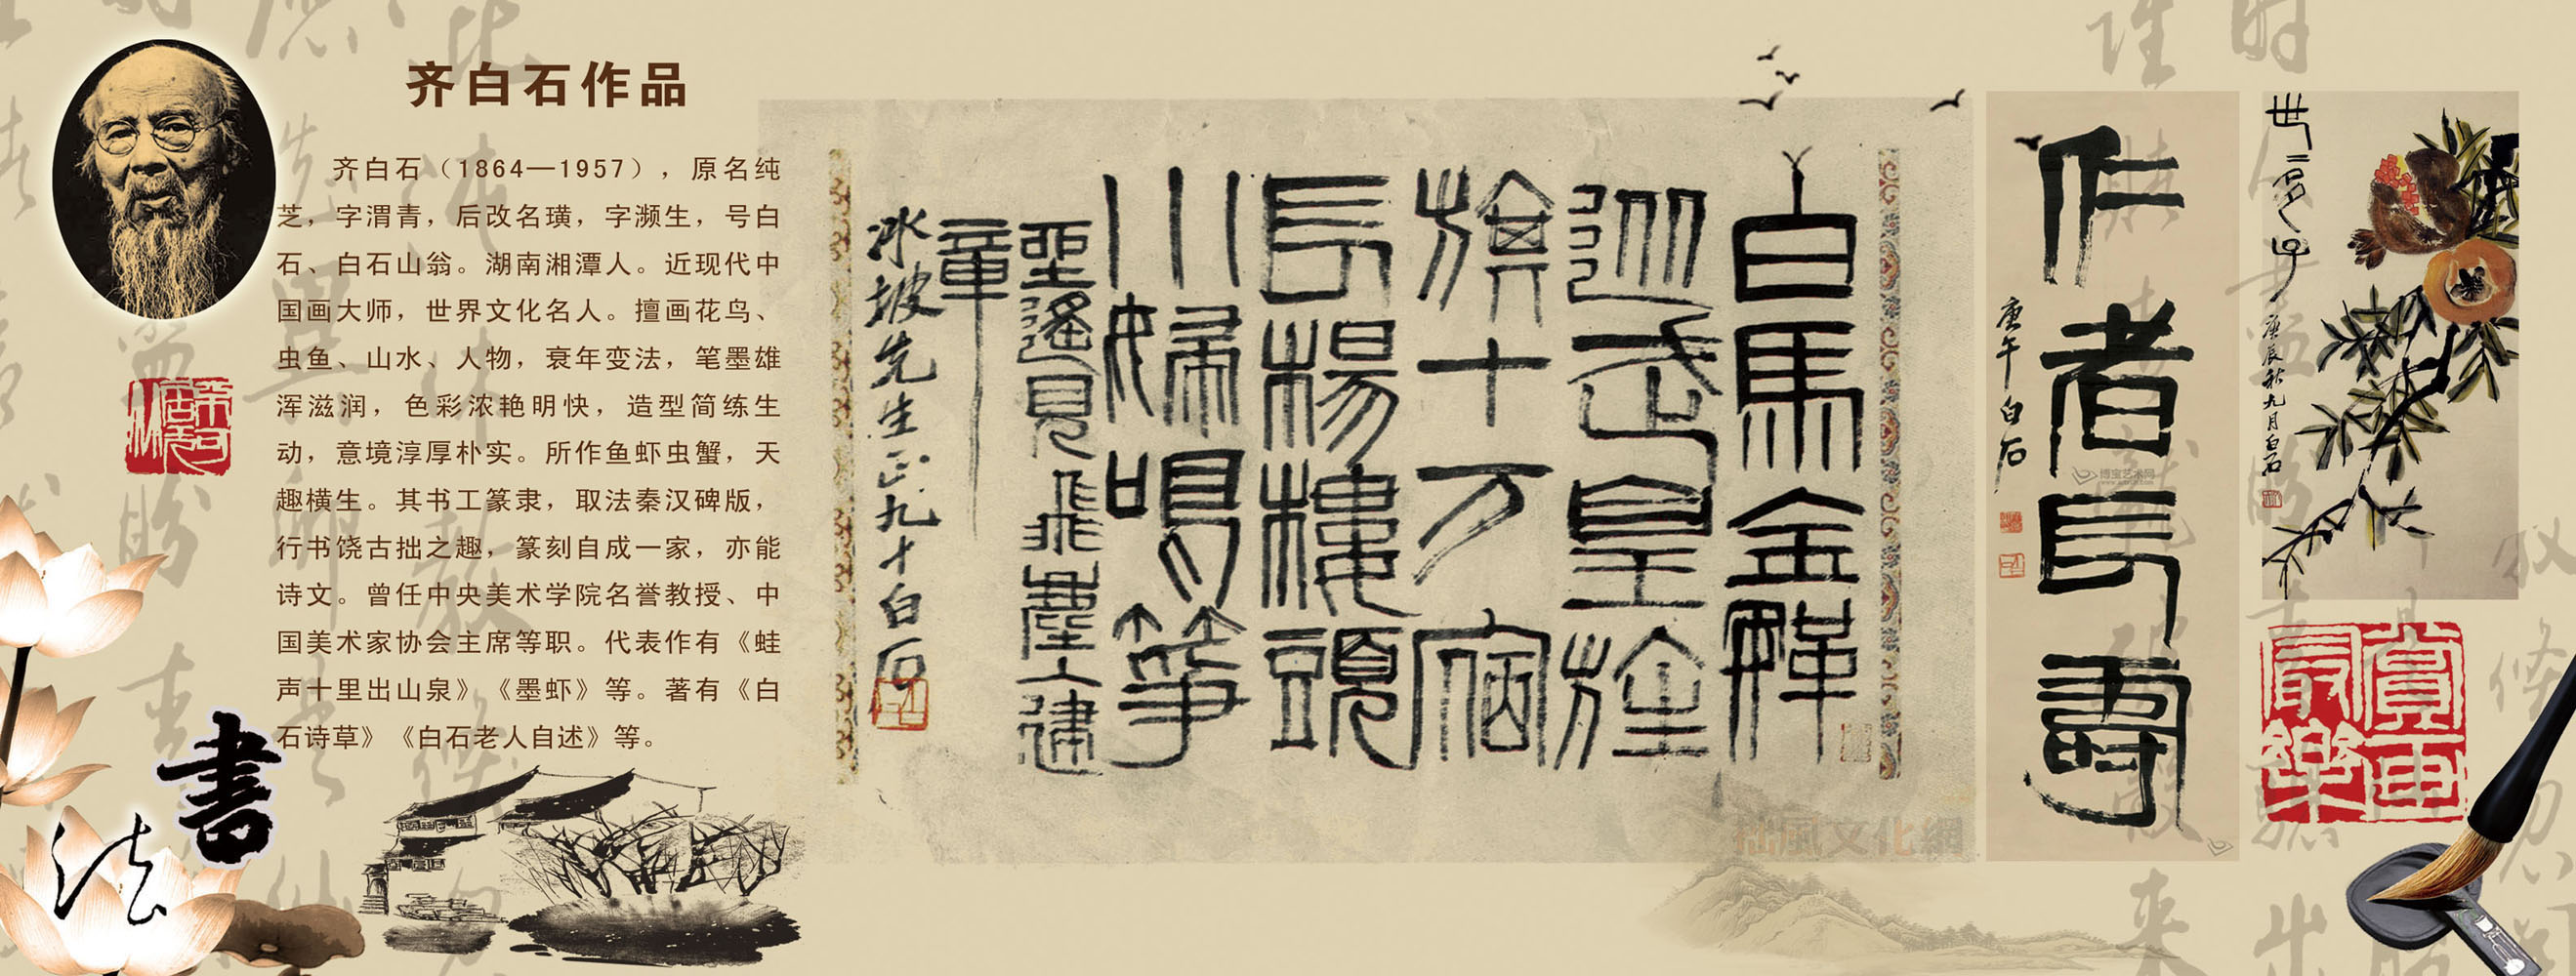 齐白石作品
齐白石（1864—1957），原名纯
芝，字渭青，后改名璜，字濒生，号白
石、白石山翁。湖南湘潭人。近现代中
国画大师，世界文化名人。擅画花鸟、
虫鱼、山水、人物，衰年变法，笔墨雄
浑滋润，色彩浓艳明快，造型简练生
动，意境淳厚朴实。所作鱼虾虫蟹，天
趣横生。其书工篆隶，取法秦汉碑版，
行书饶古拙之趣，篆刻自成一家，亦能
诗文。曾任中央美术学院名誉教授、中
国美术家协会主席等职。代表作有《蛙
声十里出山泉》《墨虾》等。著有《白
石诗草》《白石老人自述》等。
書法
白馬金鞍
從武皇旌
旗十万宿
長楊樓頭
小婦鳴箏
坐遙見飛塵入建
章
冰坡先生正九十白石
拙風文化網
仁者長壽
庚午白石
博宝艺术网
世世多子
庚辰秋九月白石